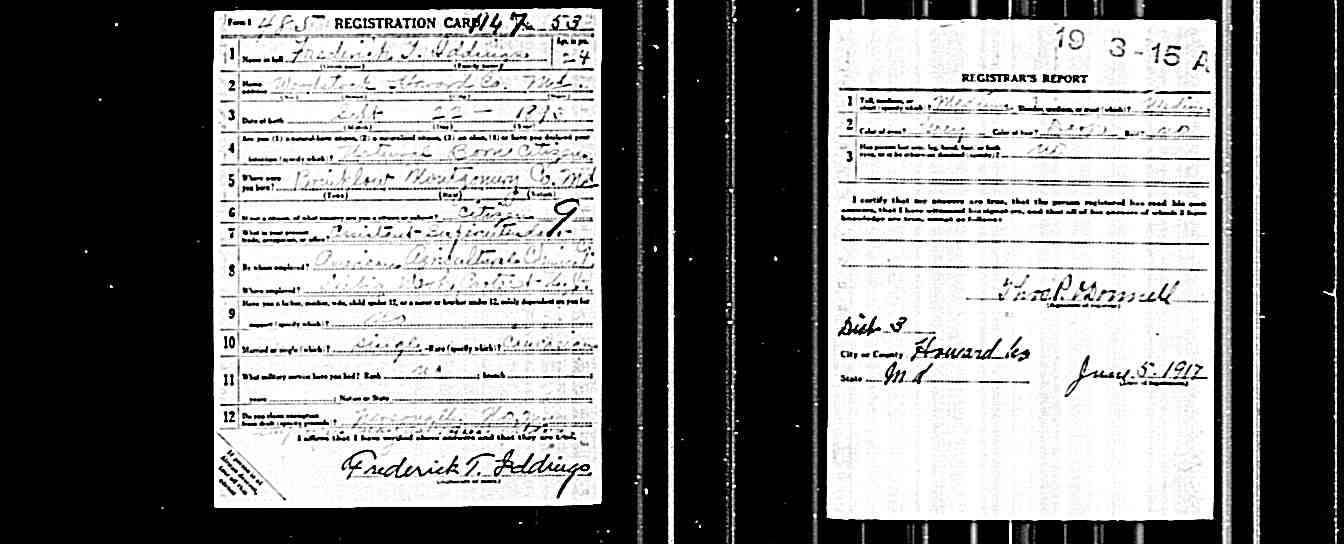 Form 1 485 REGISTRATION CARD 147 No. 53
1 Name in full Frederick T. Iddings Age, in yrs. 24
(Given name) (Family name)
2 Home address Woodstock Howard Co. Md.
3 Date of birth Sept 22 —
(Month) (Day) (Year)
4 Are you (1) a natural-born citizen, (2) a naturalized citizen, (3) an alien, (4) or have you declared your
intention (specify which)? Natural Born Citizen
5 Where were you born? Brinklow Montgomery Co. Md
(Town) (State) (Nation)
6 If not a citizen, of what country are you a citizen or subject? Citizen
9
7 What is your present trade, occupation, or office? Assistant Superintendent
8 By whom employed? American Agricultural Chem. Co.
Where employed?
9 Have you a father, mother, wife, child under 12, or a sister or brother under 12, solely dependent on you for
support (specify which)? No
10 Married or single (which)? Single Race (specify which)? Caucasian
11 What military service have you had? Rank no ; branch
years ; Nation or State
12 Do you claim exemption from draft (specify grounds)?
I affirm that I have verified above answers and that they are true.
Frederick T. Iddings
(Signature or mark)
19 3-15 A
REGISTRAR'S REPORT
1 Tall, medium, or short (specify which)? Medium Slender, medium, or stout (which)? Medium
2 Color of eyes? Grey Color of hair? Bald? no
3 Has person lost arm, leg, hand, foot, or both
eyes, or is he otherwise disabled (specify)? no
I certify that my answers are true, that the person registered has read his own
answers, that I have witnessed his signature, and that all of his answers of which I have
knowledge are true, except as follows:
Thos P. O'Donnell
(Signature of registrar)
Dist 3
City or County Howard Co
State Md June 5-1917
(Date of registration)